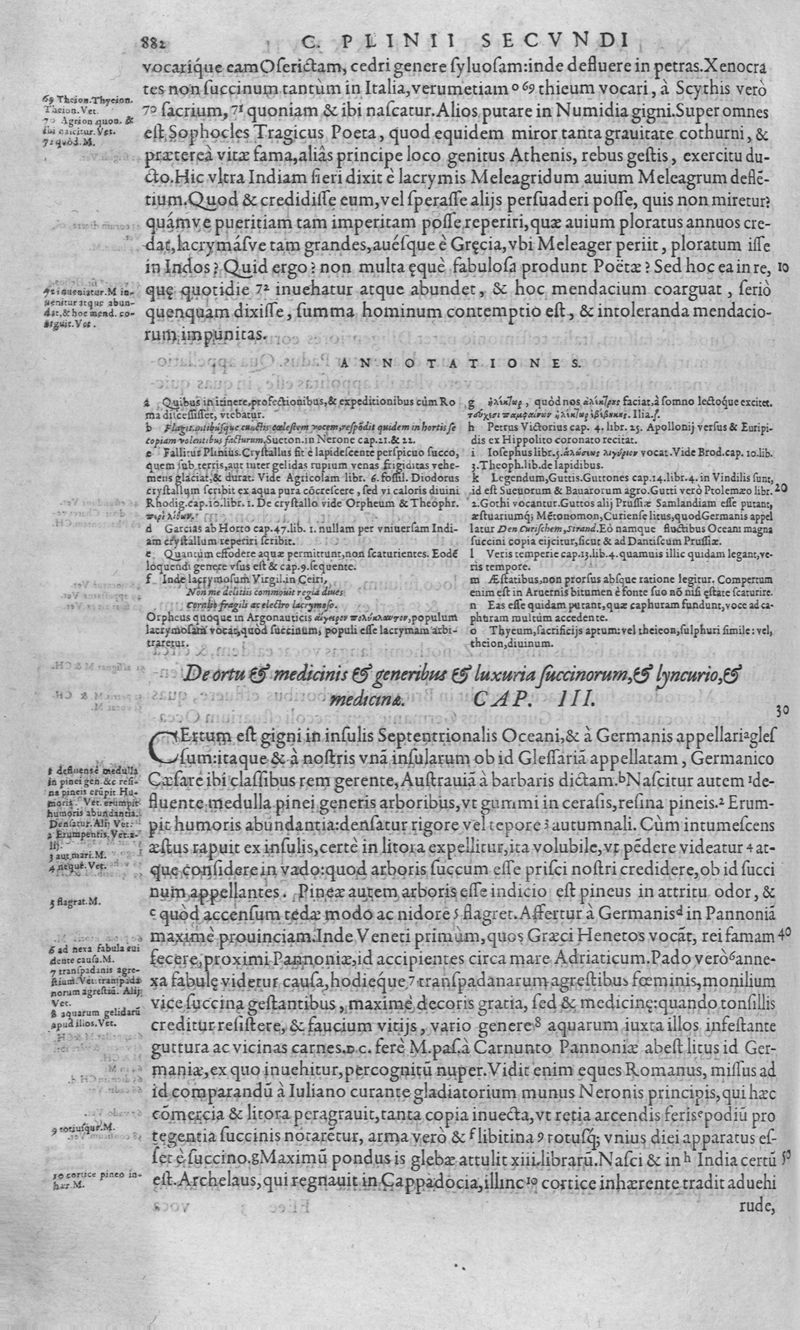 882
C. PLINII SECVNDI
vocaríque eam Oserictam, cedri genere syluosam: inde defluere in petras. Xenocra
tes non succinum tantùm in Italia, verumetiam º ⁶⁹ thieum vocari, à Scythis verò
⁷⁰ sacrium, ⁷¹ quoniam & ibi nascatur. Alios putare in Numidia gigni. Super omnes
est Sophocles Tragicus Poeta, quod equidem miror tanta grauitate cothurni, &
præterea vitæ fama, aliâs principe loco genitus Athenis, rebus gestis, exercitu du-
cto. Hic vltra Indiam fieri dixit è lacrymis Meleagridum auium Meleagrum deflē-
tium. Quod & credidisse eum, vel sperasse alijs persuaderi posse, quis non miretur?
quámve pueritiam tam imperitam posse reperiri, quæ auium ploratus annuos cre-
dat, lacrymásve tam grandes, auésque è Gręcia, vbi Meleager periit, ploratum isse
in Indos? Quid ergo? non multa ęquè fabulosa produnt Poëtæ? Sed hoc ea in re, 10
quę quotidie ⁷² inuehatur atque abundet, & hoc mendacium coarguat, seriò
quenquam dixisse, summa hominum contemptio est, & intoleranda mendacio-
rum impunitas.
69 Theion. Thyeion.
Thcion. Vet.
70 Agrion quon. &
ibi nascitur. Vet.
71 quòd. M.
72 inueniatur. M in-
uenitur atque abun-
dat, & hoc mend. co-
arguit. Vet.
ANNOTATIONES.
a Quibus in itinere, profectionibus, & expeditionibus cùm Ro
ma discessisset, vtebatur.
b Flagitantibúsque cunctis cœlestem vocem, respōdit quidem in hortis se
copiam volentibus facturum, Sueton. in Nerone cap. 21. & 22.
c Fallitur Plinius. Crystallus fit è lapidescente perspicuo succo,
quem sub terris, aut inter gelidas rupium venas frigiditas vehe-
mens glaciat, & durat. Vide Agricolam libr. 6. fossil. Diodorus
crystallum scribit ex aqua pura cōcrescere, sed vi caloris diuini
Rhodig. cap. 10. libr. 1. De crystallo vide Orpheum & Theophr.
περὶ λίθων.
d Garcias ab Horto cap. 47. lib. 1. nullam per vniuersam Indi-
am crystallum reperiri scribit.
e Quantùm effodere aquæ permittunt, non scaturientes. Eodē
loquendi genere vsus est & cap. 9. sequente.
f Inde lacrymosum Virgil. in Ceiri,
Non me delitiis commouit regia diues
Coralio fragili ac electro lacrymoso.
Orpheus quoque in Argonauticis αἴγειρον πολύκλαυτον, populum
lacrymosam vocat, quòd succinum, populi esse lacrymam arbi-
traretur.
g ἠλέκτωρ, quòd nos ἀλέκτρες faciat, à somno lectoque excitet.
τεύχεσι παμφαίνων ἠλέκτωρ ἐβεβήκει. Ilia. ζ.
h Petrus Victorius cap. 4. libr. 25. Apollonij versus & Euripi-
dis ex Hippolito coronato recitat.
i Iosephus libr. 5. λιγύριον vocat. Vide Brod. cap. 10. lib.
3. Theoph. lib. de lapidibus.
k Legendum, Guttis. Guttones cap. 14. libr. 4. in Vindilis sunt,
id est Sueuorum & Bauarorum agro. Gutti verò Ptolemæo libr. 20
2. Gothi vocantur. Guttos alij Prussiæ Samlandiam esse putant,
æstuariumq; Mētonomon, Curiense litus, quod Germanis appel
latur Den Curischem, strand. Eò namque fluctibus Oceani magna
succini copia eijcitur, sicut & ad Dantiscum Prussiæ.
l Veris temperie cap. 13. lib. 4. quamuis illic quidam legant, ve-
ris tempore.
m Æstatibus, non prorsus absque ratione legitur. Compertum
enim est in Aruernis bitumen è fonte suo nō nisi ęstate scaturire.
n Eas esse quidam putant, quæ caphuram fundunt, voce ad ca-
phuram multùm accedente.
o Thyeum, sacrificijs aptum: vel theieon, sulphuri simile: vel,
theion, diuinum.
De ortu & medicinis & generibus & luxuria succinorum, & lyncurio, &
medicina. CAP. III.
30
CErtum est gigni in insulis Septentrionalis Oceani, & à Germanis appellari ᵃ gles
sum: itaque & à nostris vnā insularum ob id Glessariā appellatam, Germanico
Cæsare ibi classibus rem gerente, Austrauiā à barbaris dictam. ᵇ Nascitur autem ¹ de-
fluente medulla pinei generis arboribus, vt gummi in cerasis, resina pineis. ² Erum-
pit humoris abundantia: densatur rigore vel tepore ³ autumnali. Cùm intumescens
æstus rapuit ex insulis, certè in litora expellitur, ita volubile, vt pēdere videatur ⁴ at-
que considere in vado: quod arboris succum esse prisci nostri credidere, ob id succi
num appellantes. Pineæ autem arboris esse indicio est pineus in attritu odor, &
ᶜ quòd accensum tedæ modo ac nidore ⁵ flagret. Affertur à Germanis ᵈ in Pannoniā
maximè prouinciam. Inde Veneti primùm, quos Græci Henetos vocāt, rei famam 40
fecere, proximi Pannoniæ, id accipientes circa mare Adriaticum. Pado verò ⁶ anne-
xa fabulę videtur causa, hodieque ⁷ transpadanarum agrestibus fœminis, monilium
vice succina gestantibus, maximè decoris gratia, sed & medicinę: quando tonsillis
creditur resistere, & faucium vitijs, vario genere ⁸ aquarum iuxta illos infestante
guttura ac vicinas carnes. D. C. ferè M. pas. à Carnunto Pannoniæ abest litus id Ger-
maniæ, ex quo inuehitur, percognitū nuper. Vidit enim eques Romanus, missus ad
id comparandū à Iuliano curante gladiatorium munus Neronis principis, qui hæc
cōmercia & litora peragrauit, tanta copia inuecta, vt retia arcendis feris ᵉ podiū pro
tegentia succinis notarētur, arma verò & ᶠ libitina ⁹ totusq; vnius diei apparatus es-
set è succino. g Maximū pondus is glebæ attulit xiii. librarū. Nasci & in ʰ India certū 50
est. Archelaus, qui regnauit in Cappadocia, illinc ¹⁰ cortice inhærente tradit aduehi
rude,
1 defluente medulla
in pinei gen. & resi-
na pineis erūpit Hu-
moris. Vet. erumpit
humoris abundantia.
Densatur. Alij Vet.
2 Erumpentis. Vet. a-
lij.
3 aut mari. M.
4 neque. Vet.
5 flagrat. M.
6 ad nexa fabula eui
dente causa. M.
7 transpadanis agre-
stium. Vet. transpada
norum agrestiū. Alij
Vet.
8 aquarum gelidarū
apud illos. Vet.
9 totiusque. M.
10 cortice pineo in-
hær. M.